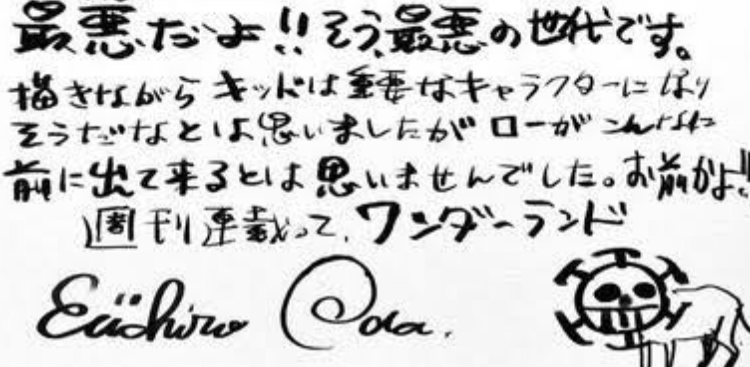 最悪だよ!!そう、最悪の世代です。
描きながらキッドは重要なキャラクターになり
そうだなとは思いましたがローがこんなに
前に出て来るとは思いませんでした。お前かよ!!
週刊連載って、ワンダーランド
Eiichiro Oda.